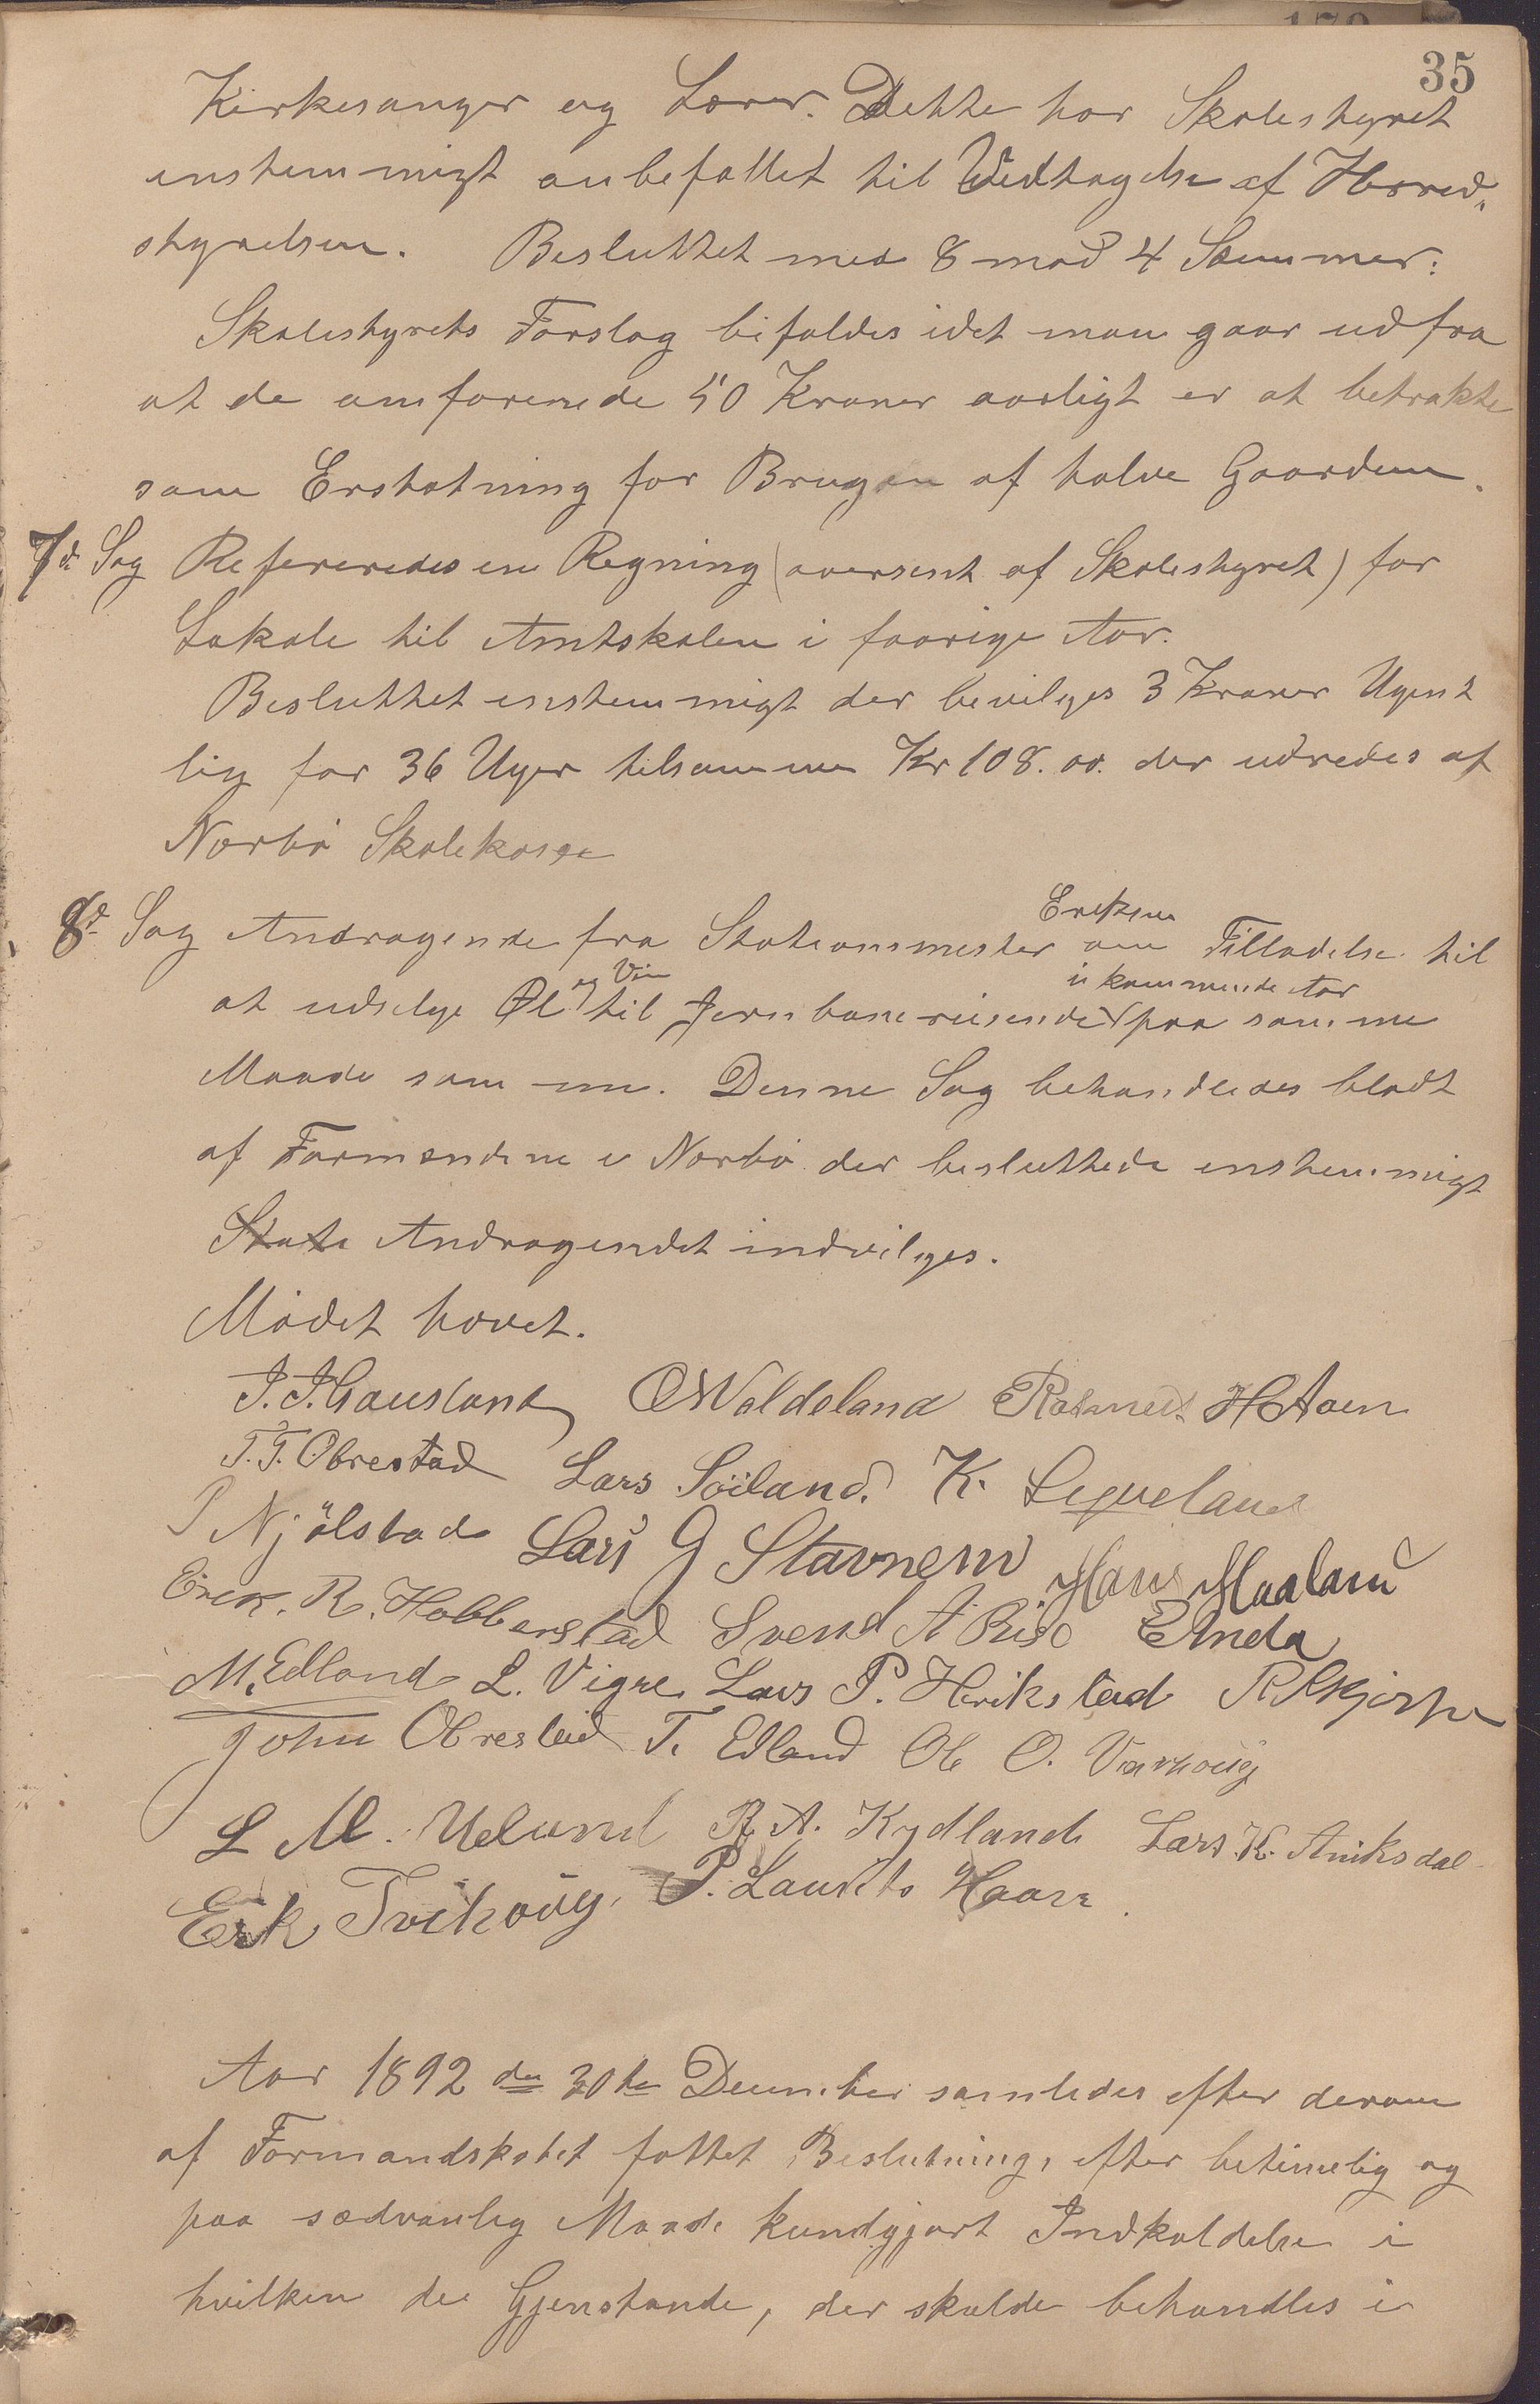 35
Kirkesanger og Lærer. Dette har Skolestyret
enstemmigt anbefallet til Vedtagelse af Herred„
styrelsen. Besluttet med 8 mod 4 Stemmer:
Skolestyrets Forslag bifaldes idet man gaar ud fra
at de omforenede 50 Kroner aarligt er at betrakte
som Erstatning for Brugen af halve Gaarden.
7de Sag Refereredes en Regning (oversent af Skolestyret) for
Lokale til Amtskolen i forrige Aar.
Besluttet enstemmigt der bevilges 3 Kroner Ugent
lig for 36 Uger tilsammen Kr 108.00. der udredes af
Nærbø Skolekasse
8de Sag Andragende fra Stationsmester Eriksen om Tilladelse til
at udselge Øl og Vin til Jernbanereisende i kommende Aar paa samme
Maade som nu. Denne Sag behandledes blodt
af Formændene i Nærbø der besluttede enstemmigt
State Andragendet indvilges.
Mødet hævet.
J. J. Gausland O Waldeland Rasmus H Aoen
T. T. Obrestad Lars Söiland. K. Ligveland
P Njölstad Lars G Stavnem Hans Maaland
Erik. R. Hobberstad Svend A Riso E Inda
M. Edland L. Vigre Lars P. Herikstad R Skjærpe
John Obrestad T. Edland Ole O. Varhoug
L M. Ueland R. A. Kydland Lars. K. Aniksdal
Erik Tvihoug. P. Laurits Haarr.
Aar 1892 den 30te December samledes efter derom
af Formandskabet fattet Beslutning, efter betimelig og
paa sædvanlig Maade kundgjort Indkaldelse i
hvilken de Gjenstande, der skulde behandles i